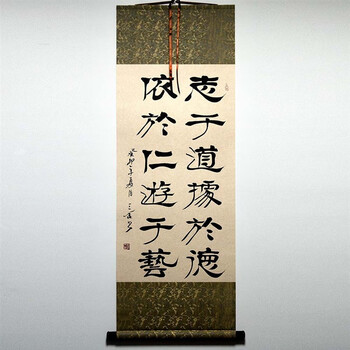 志于道據於德
依於仁遊于藝